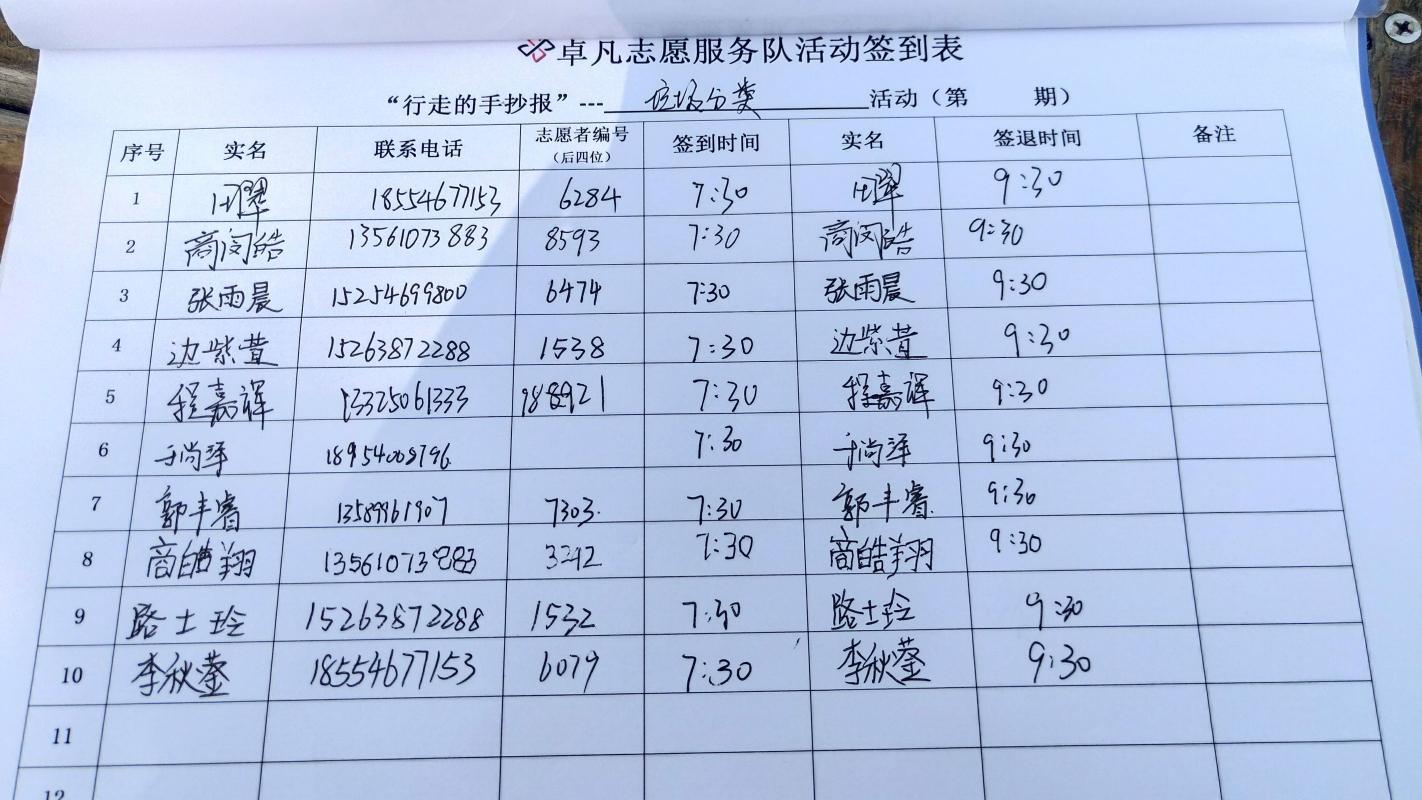 卓凡志愿服务队活动签到表
“行走的手抄报”---垃圾分类活动（第 期）
序号 实名 联系电话 志愿者编号（后四位） 签到时间 实名 签退时间 备注
1 田翠 18554677153 6284 7:30 田翠 9:30
2 商闵皓 13561073883 8593 7:30 商闵皓 9:30
3 张雨晨 15254699800 6474 7:30 张雨晨 9:30
4 边紫萱 15263872288 1538 7:30 边紫萱 9:30
5 程嘉辉 13325061333 7:30 程嘉辉 9:30
6 于尚泽 18954008796 7:30 于尚泽 9:30
7 郭丰睿 13589961907 7303 7:30 郭丰睿 9:30
8 商皓翔 13561073883 3242 7:30 商皓翔 9:30
9 路士玲 15263872288 1532 7:30 路士玲 9:30
10 李秋蓥 18554677153 6079 7:30 李秋蓥 9:30
11
12